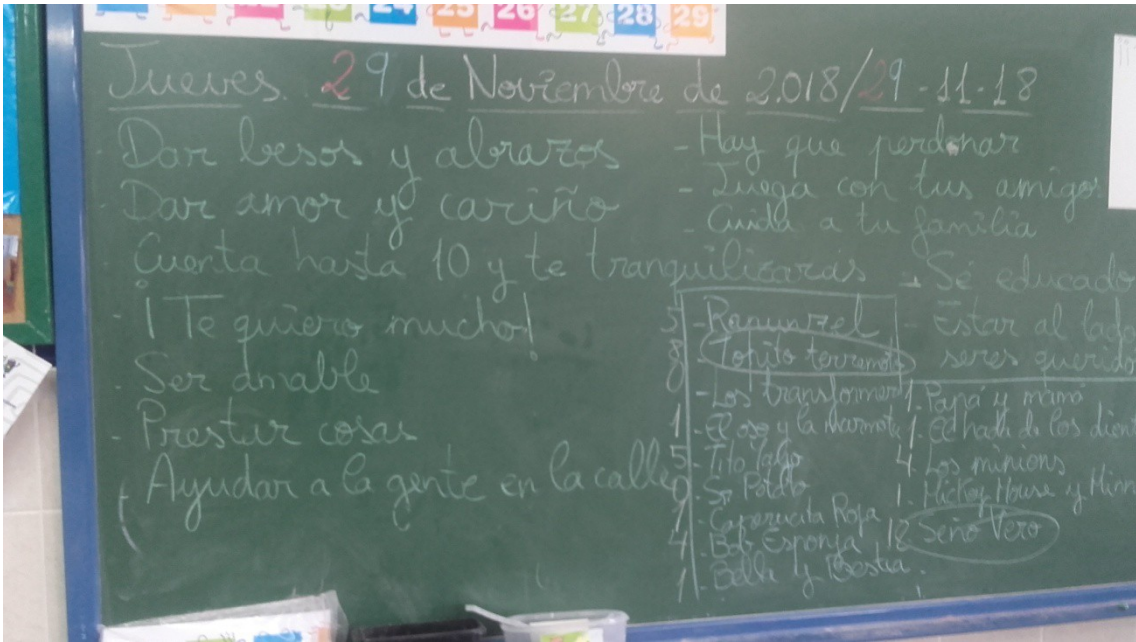 24 25 26 27 28 29
Jueves 29 de Noviembre de 2.018/29-11-18
- Dar besos y abrazos
- Dar amor y cariño
- Cuenta hasta 10 y te tranquilizarás
- ¡Te quiero mucho!
- Ser amable
- Prestar cosas
- Ayudar a la gente en la calle
- Hay que perdonar
- Juega con tus amigos
- Cuida a tu familia
- Sé educado
- Estar al lado
seres querido
5 - Rapunzel
8 - Toñito terremoto
- Los transformers
1 - El oso y la marmota
5 - Tito Yayo
0 - Sr Potato
1 - Caperucita Roja
4 - Bob Esponja
1 - Bella y Bestia.
1 - Papá y mamá
1 - El hada de los dient
4 - Los minions
1 - Mickey Mouse y Minn
18 Seño Vero